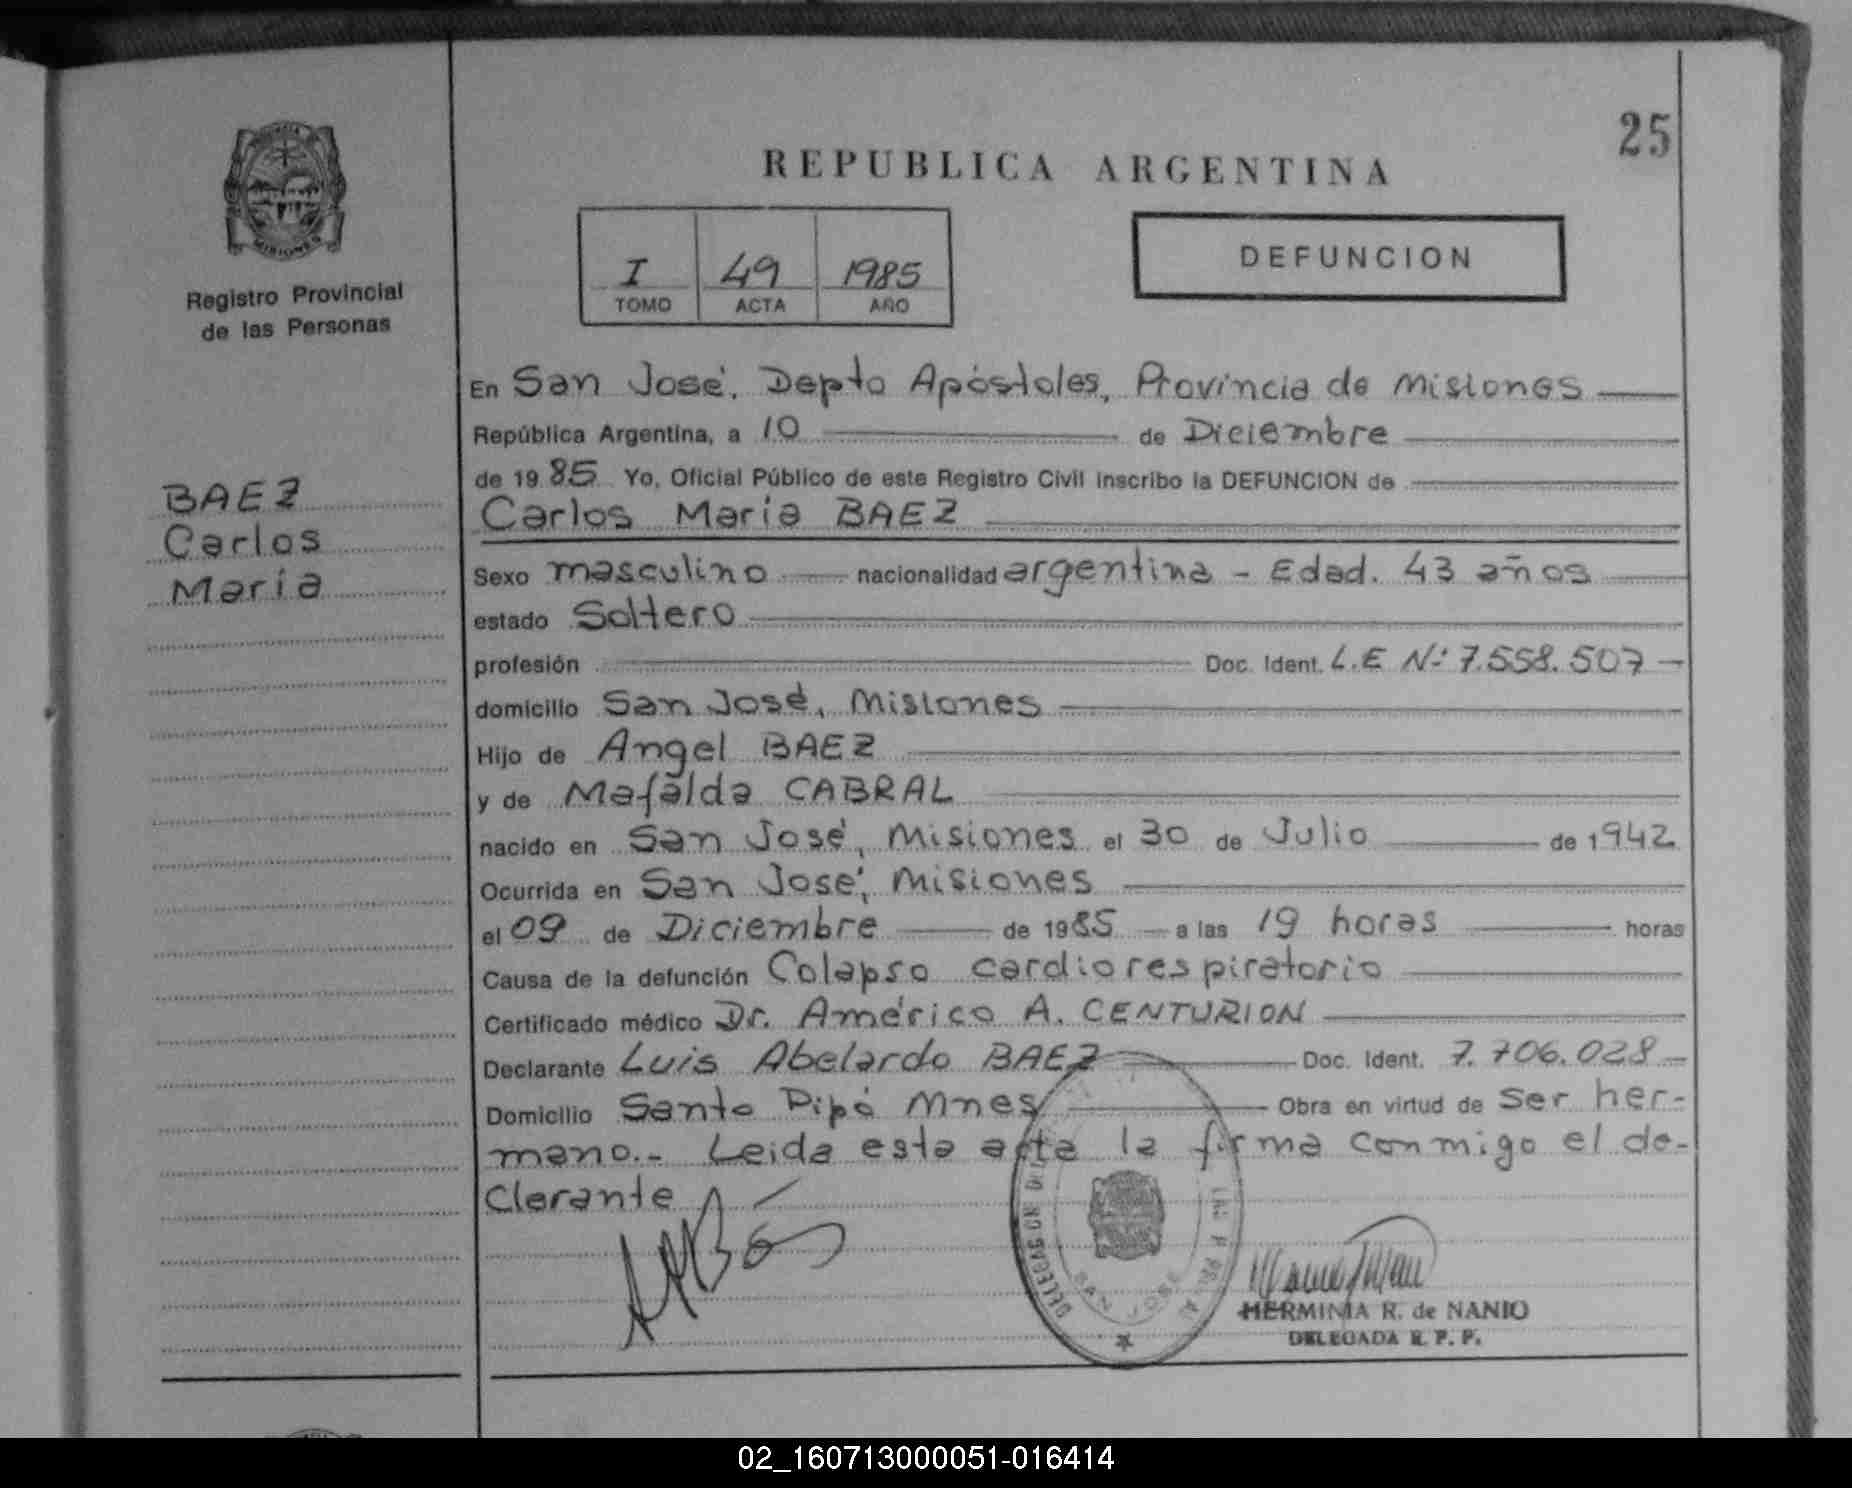 25
REPUBLICA ARGENTINA
MISIONES
Registro Provincial
de las Personas
I 49 1985
TOMO ACTA AÑO
DEFUNCION
BAEZ
Carlos
María
En San José, Depto Apóstoles, Provincia de Misiones
República Argentina, a 10 de Diciembre
de 1985 Yo, Oficial Público de este Registro Civil inscribo la DEFUNCION de
Carlos María BAEZ
Sexo masculino nacionalidad argentina - Edad. 43 años
estado Soltero
profesión Doc. Ident. L.E Nº: 7.558.507
domicilio San José, Misiones
Hijo de Angel BAEZ
y de Mafalda CABRAL
nacido en San José, Misiones el 30 de Julio de 1942
Ocurrida en San José, Misiones
el 09 de Diciembre de 1985 a las 19 horas horas
Causa de la defunción Colapso cardiorespiratorio
Certificado médico Dr. Américo A. CENTURION
Declarante Luis Abelardo BAEZ Doc. Ident. 7.706.028
Domicilio Santo Pipó Mnes Obra en virtud de ser her-
mano.- Leida esta acta la firma conmigo el de-
clarante
SAN JOSE
HERMINIA R. de NANIO
DELEGADA R. P. P.
02_160713000051-016414